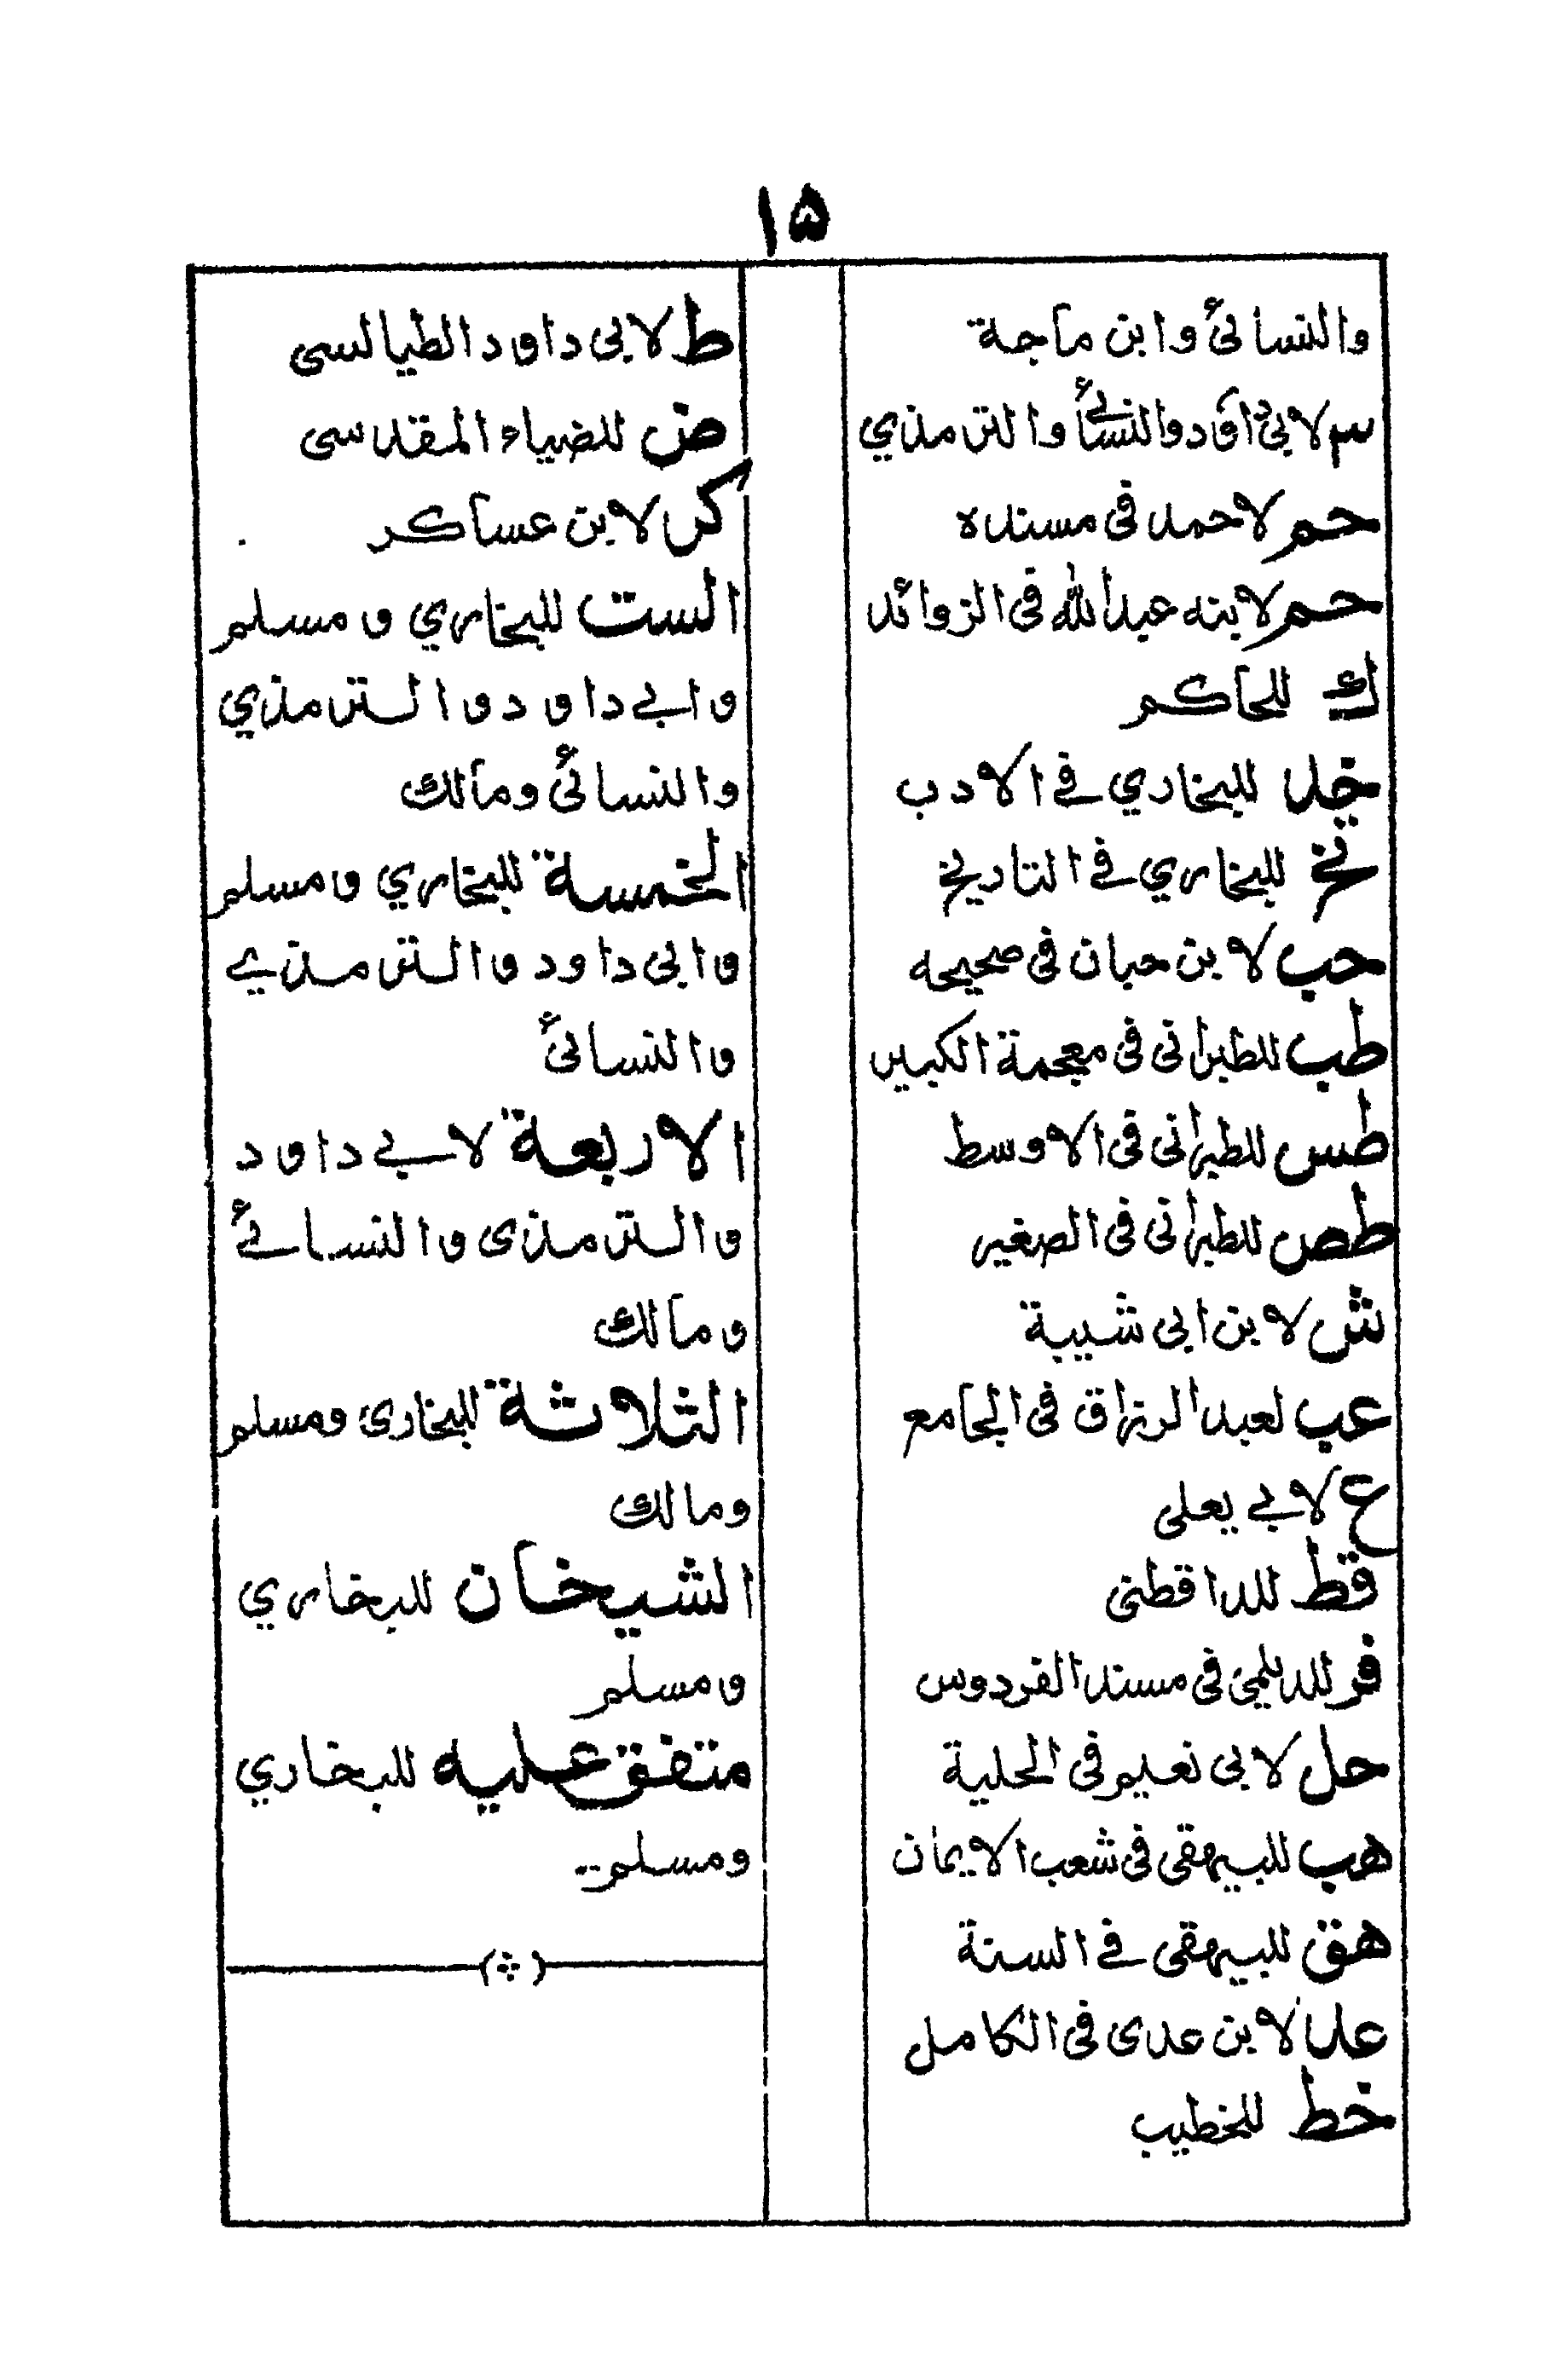 ١٥
والنسائی وابن ماجة
٣ لابی داؤد والنسائی والترمذي
حم لاحمد فی مسنده
حم لابنه عبد الله فی الزوائد
ك للحاكم
خد للبخاري فے الادب
تخ للبخاري فے التاريخ
حب لابن حبان فی صحيحه
طب للطبرانی فی معجمة الكبير
طس للطبرانی فی الاوسط
طص للطبرانی فی الصغير
ش لابن ابی شيبة
عب لعبد الرزاق فی الجامع
ع لابے يعلى
قط للداقطنی
فر للديلمی فی مسند الفردوس
حل لابی نعيم فی الحلية
هب للبيهقی فی شعب الايمان
هق للبيهقی فے السنة
عد لابن عدى فی الكامل
خط للخطيب
ط لابی داود الطيالسی
ض للضياء المقدسی
كر لابن عساكر
الست للبخاري ومسلم
وابے داود والترمذي
والنسائی ومالك
الخمسة للبخاري ومسلم
وابی داود والترمذے
والنسائی
الاربعة لابے داود
والترمذی والنسائے
ومالك
الثلاثة للبخاری ومسلم
ومالك
الشيخان للبخاري
ومسلم
متفق عليه للبخاري
ومسلم ـــ